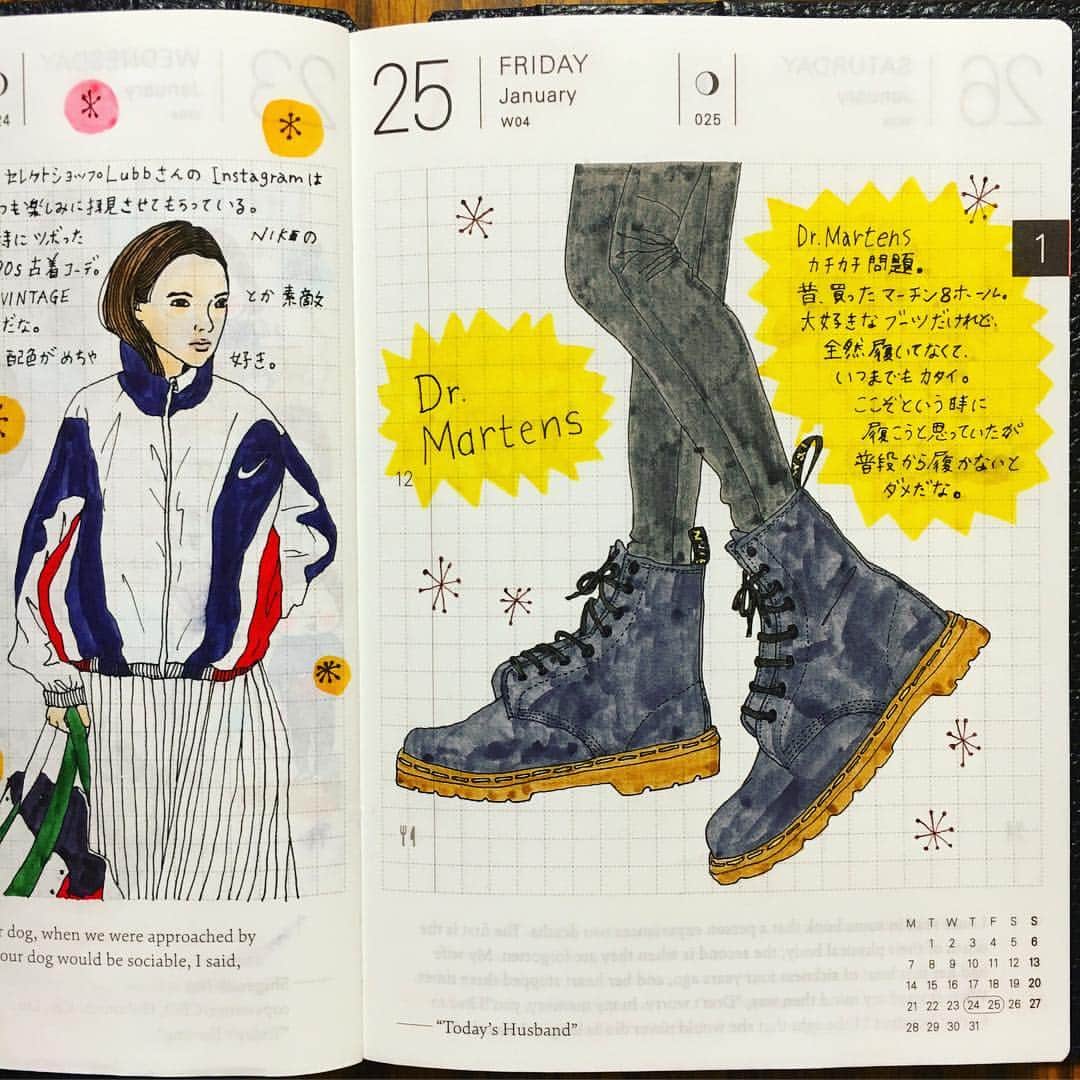 24
セレクトショップLubbさんの Instagramは
つも楽しみに拝見させてもらっている。
特に ツボだった NIKEの
90s 古着コーデ。
VINTAGE とか 素敵
だな。
配色が めちゃ 好き。
dog, when we were approached by
our dog would be sociable, I said,
25 FRIDAY
January
W04
025
1
Dr. Martens
カチカチ 問題。
昔、買った マーチン 8ホール。
大好きな ブーツだけれど、
全然 履いてなくて、
いつまでも カタイ。
ここぞという 時に
履こうと思っていたが
普段から履かないと
ダメだな。
Dr.
Martens
12
M T W T F S S
1 2 3 4 5 6
7 8 9 10 11 12 13
14 15 16 17 18 19 20
21 22 23 24 25 26 27
28 29 30 31
“Today’s Husband”